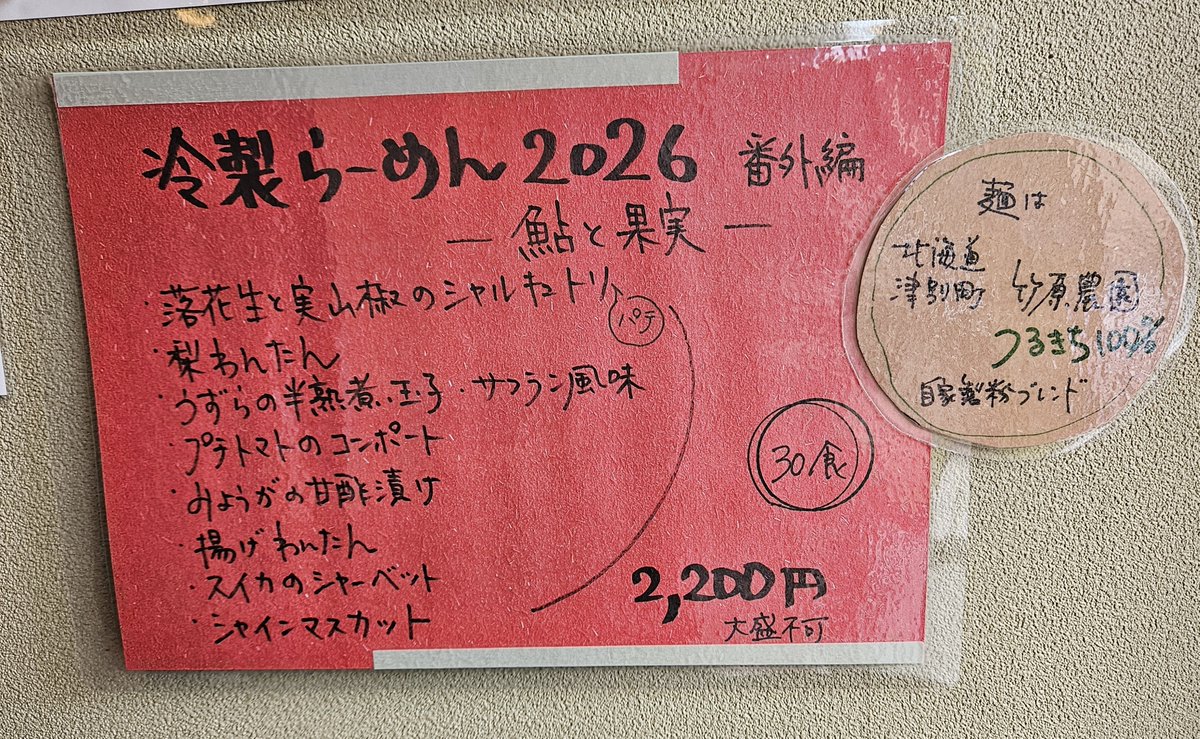 冷製らーめん2026 番外編
― 鮎と果実 ―
・落花生と実山椒のシャルキュトリ
パテ
・梨わんたん
・うずらの半熟煮玉子・サフラン風味
・プチトマトのコンポート
・みょうがの甘酢漬け
・揚げわんたん
・スイカのシャーベット
・シャインマスカット
30食
2,200円
大盛不可
麺は
北海道
津別町 竹原農園
つるきち100%
自家製粉ブレンド